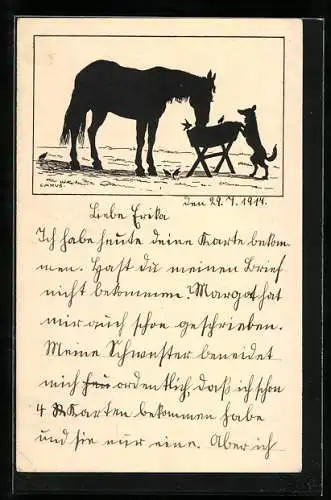 CARUS.
den 29. 7. 1914.
Liebe Erika
Ich habe heute deine Karte bekom-
men. Hast du meinen Brief
nicht bekommen. Margot hat
mir auch schon geschrieben.
Meine Schwester beneidet
mich ordentlich, daß ich schon
4 Karten bekommen habe
und sie nur eine. Aber ich